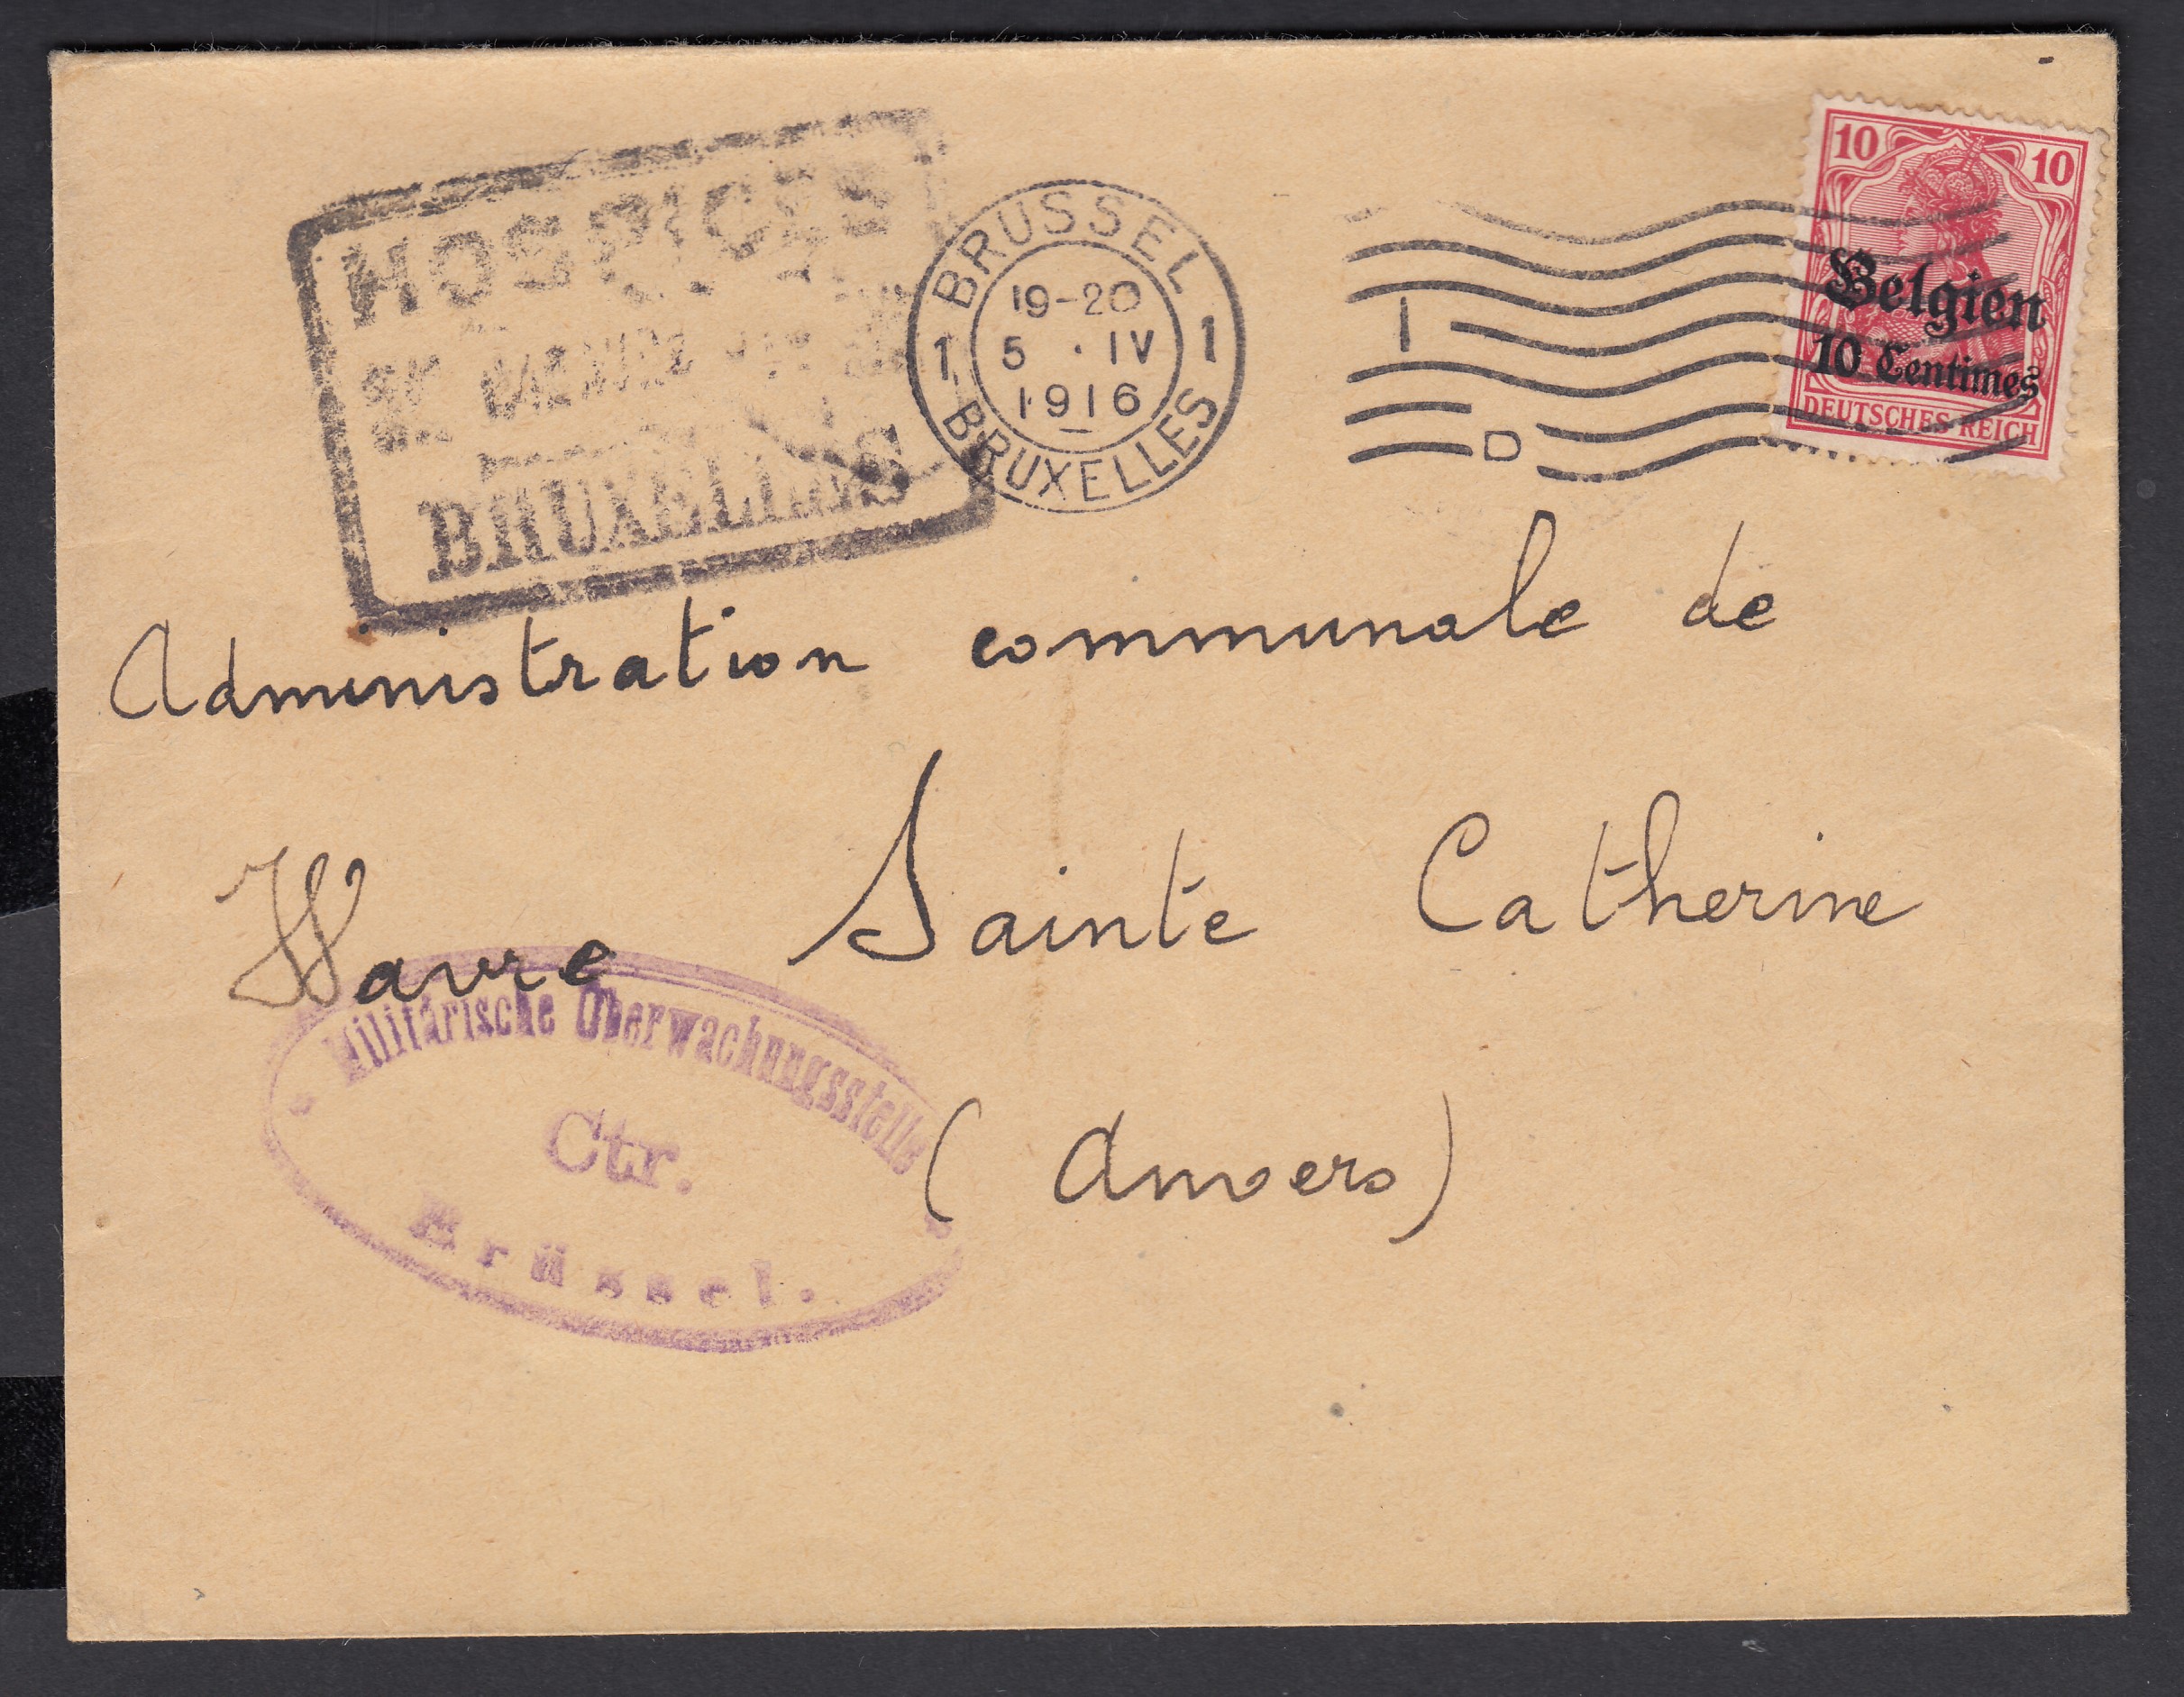 HOSPICES
BRUXELLES
BRUSSEL
1 19-20 1
5 · IV
1916
BRUXELLES
1
D
10 10
Belgien
10 Centimes
DEUTSCHES REICH
Administration communale de
Wavre Sainte Catherine
(Anvers)
Militärische Überwachungsstelle
Ctr.
Brüssel.